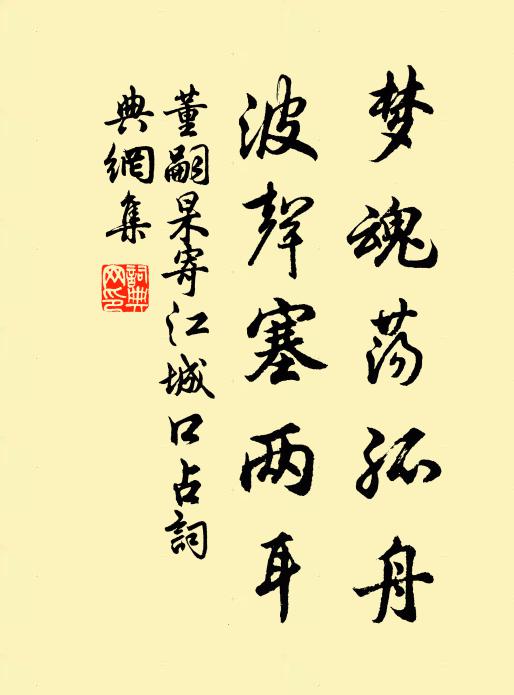 梦魂荡孤舟
波聲塞两耳
董嗣杲寄江城口占詞
典網集
詞典
网印